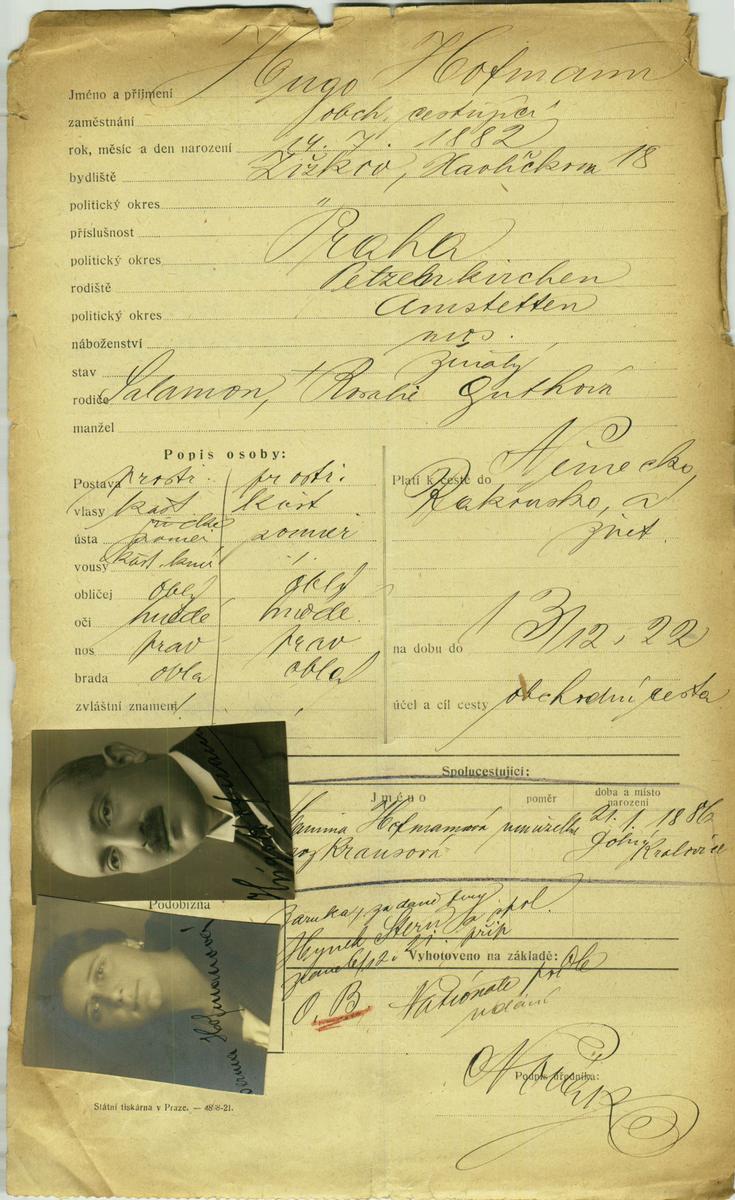 Jméno a příjmení Hugo Hofmann
zaměstnání obch. cestující
rok, měsíc a den narození 14. 7. 1882
bydliště Žižkov, Havlíčkova 18
politický okres "
příslušnost Praha
politický okres
rodiště Petzelnkirchen
politický okres Amstetten
náboženství mos.
stav ženatý
rodiče Salamon, † Rosalie Guthová
manžel
Popis osoby:
Postava prostř. prostř.
vlasy kašt kašt.
ústa
vousy
obličej oblý oblý
oči hnědé hnědé
nos prav prav
brada oblá oblá
zvláštní znamení
Platí k cestě do Německo,
Rakousko, a
zpět.
na dobu do 13/12. 22
účel a cíl cesty obchodní cesta
Spolucestující:
Jméno poměr doba a místo narození
Hofmanová manželka 21. 1. 1886
roz Krausová Dolní Kralovice
Podobizna
Hugo Hofmann
Hofmanová
Záruka za daně
Hynek Stern a spol.
Vyhotoveno na základě:
O. B. Nationále
udání
Podpis úředníka:
Státní tiskárna v Praze. — 4848-21.